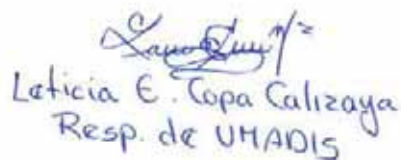 Leticia E. Copa Calizaya
Resp. de UMADIS